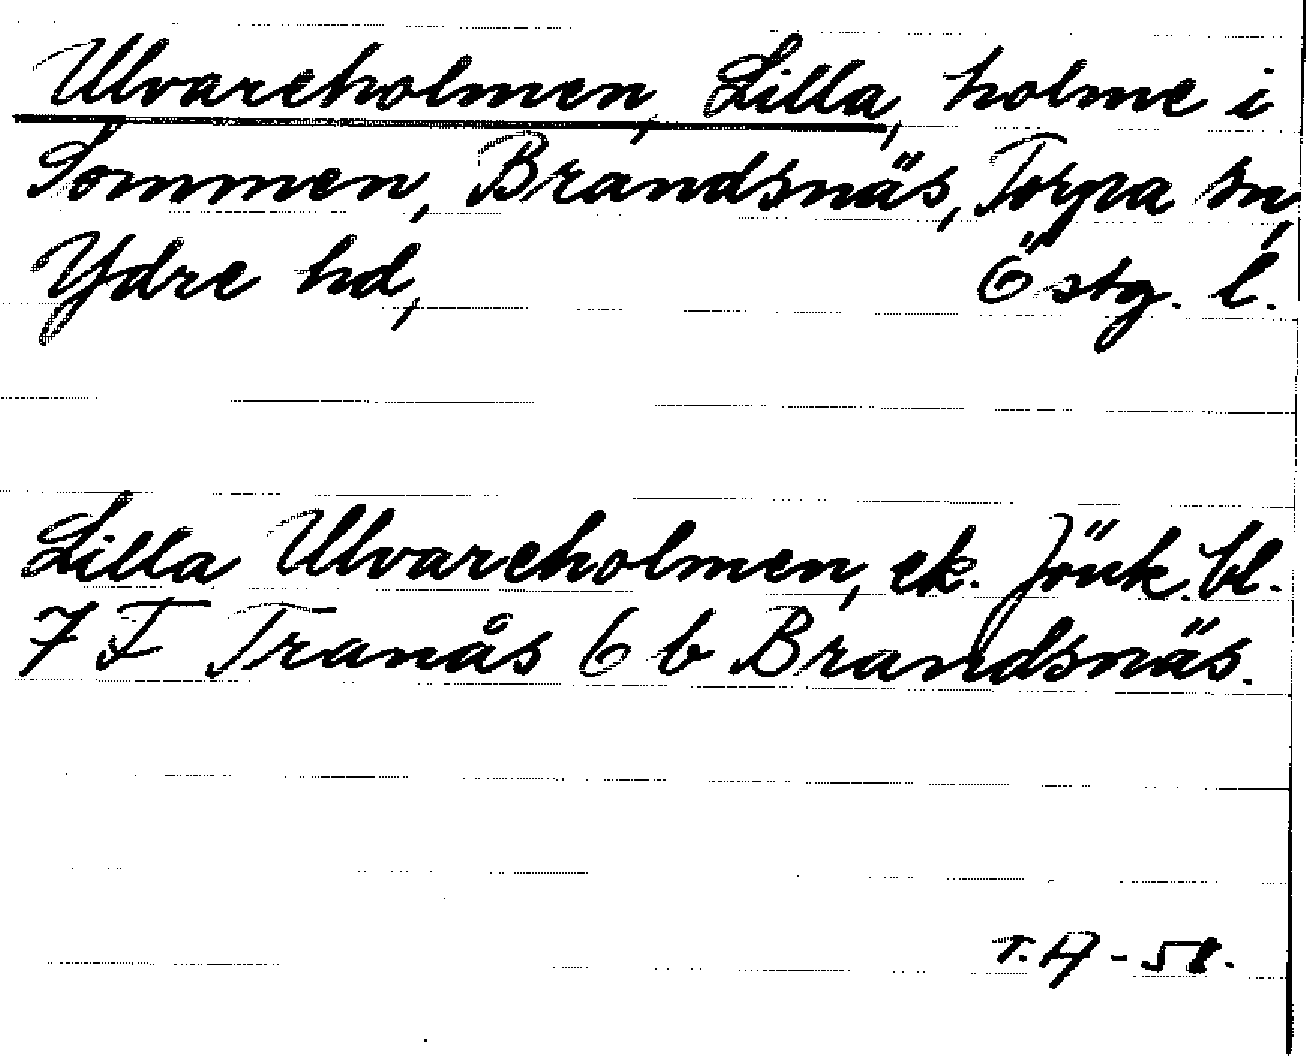 Ulvareholmen, Lilla, holme i
Sommen, Brandsnäs, Torpa sn,
Ydre hd, Östg. l.
Lilla Ulvareholmen, ek. Jönk. bl.
7 F Tranås 6 b Brandsnäs.
T. A - 58.